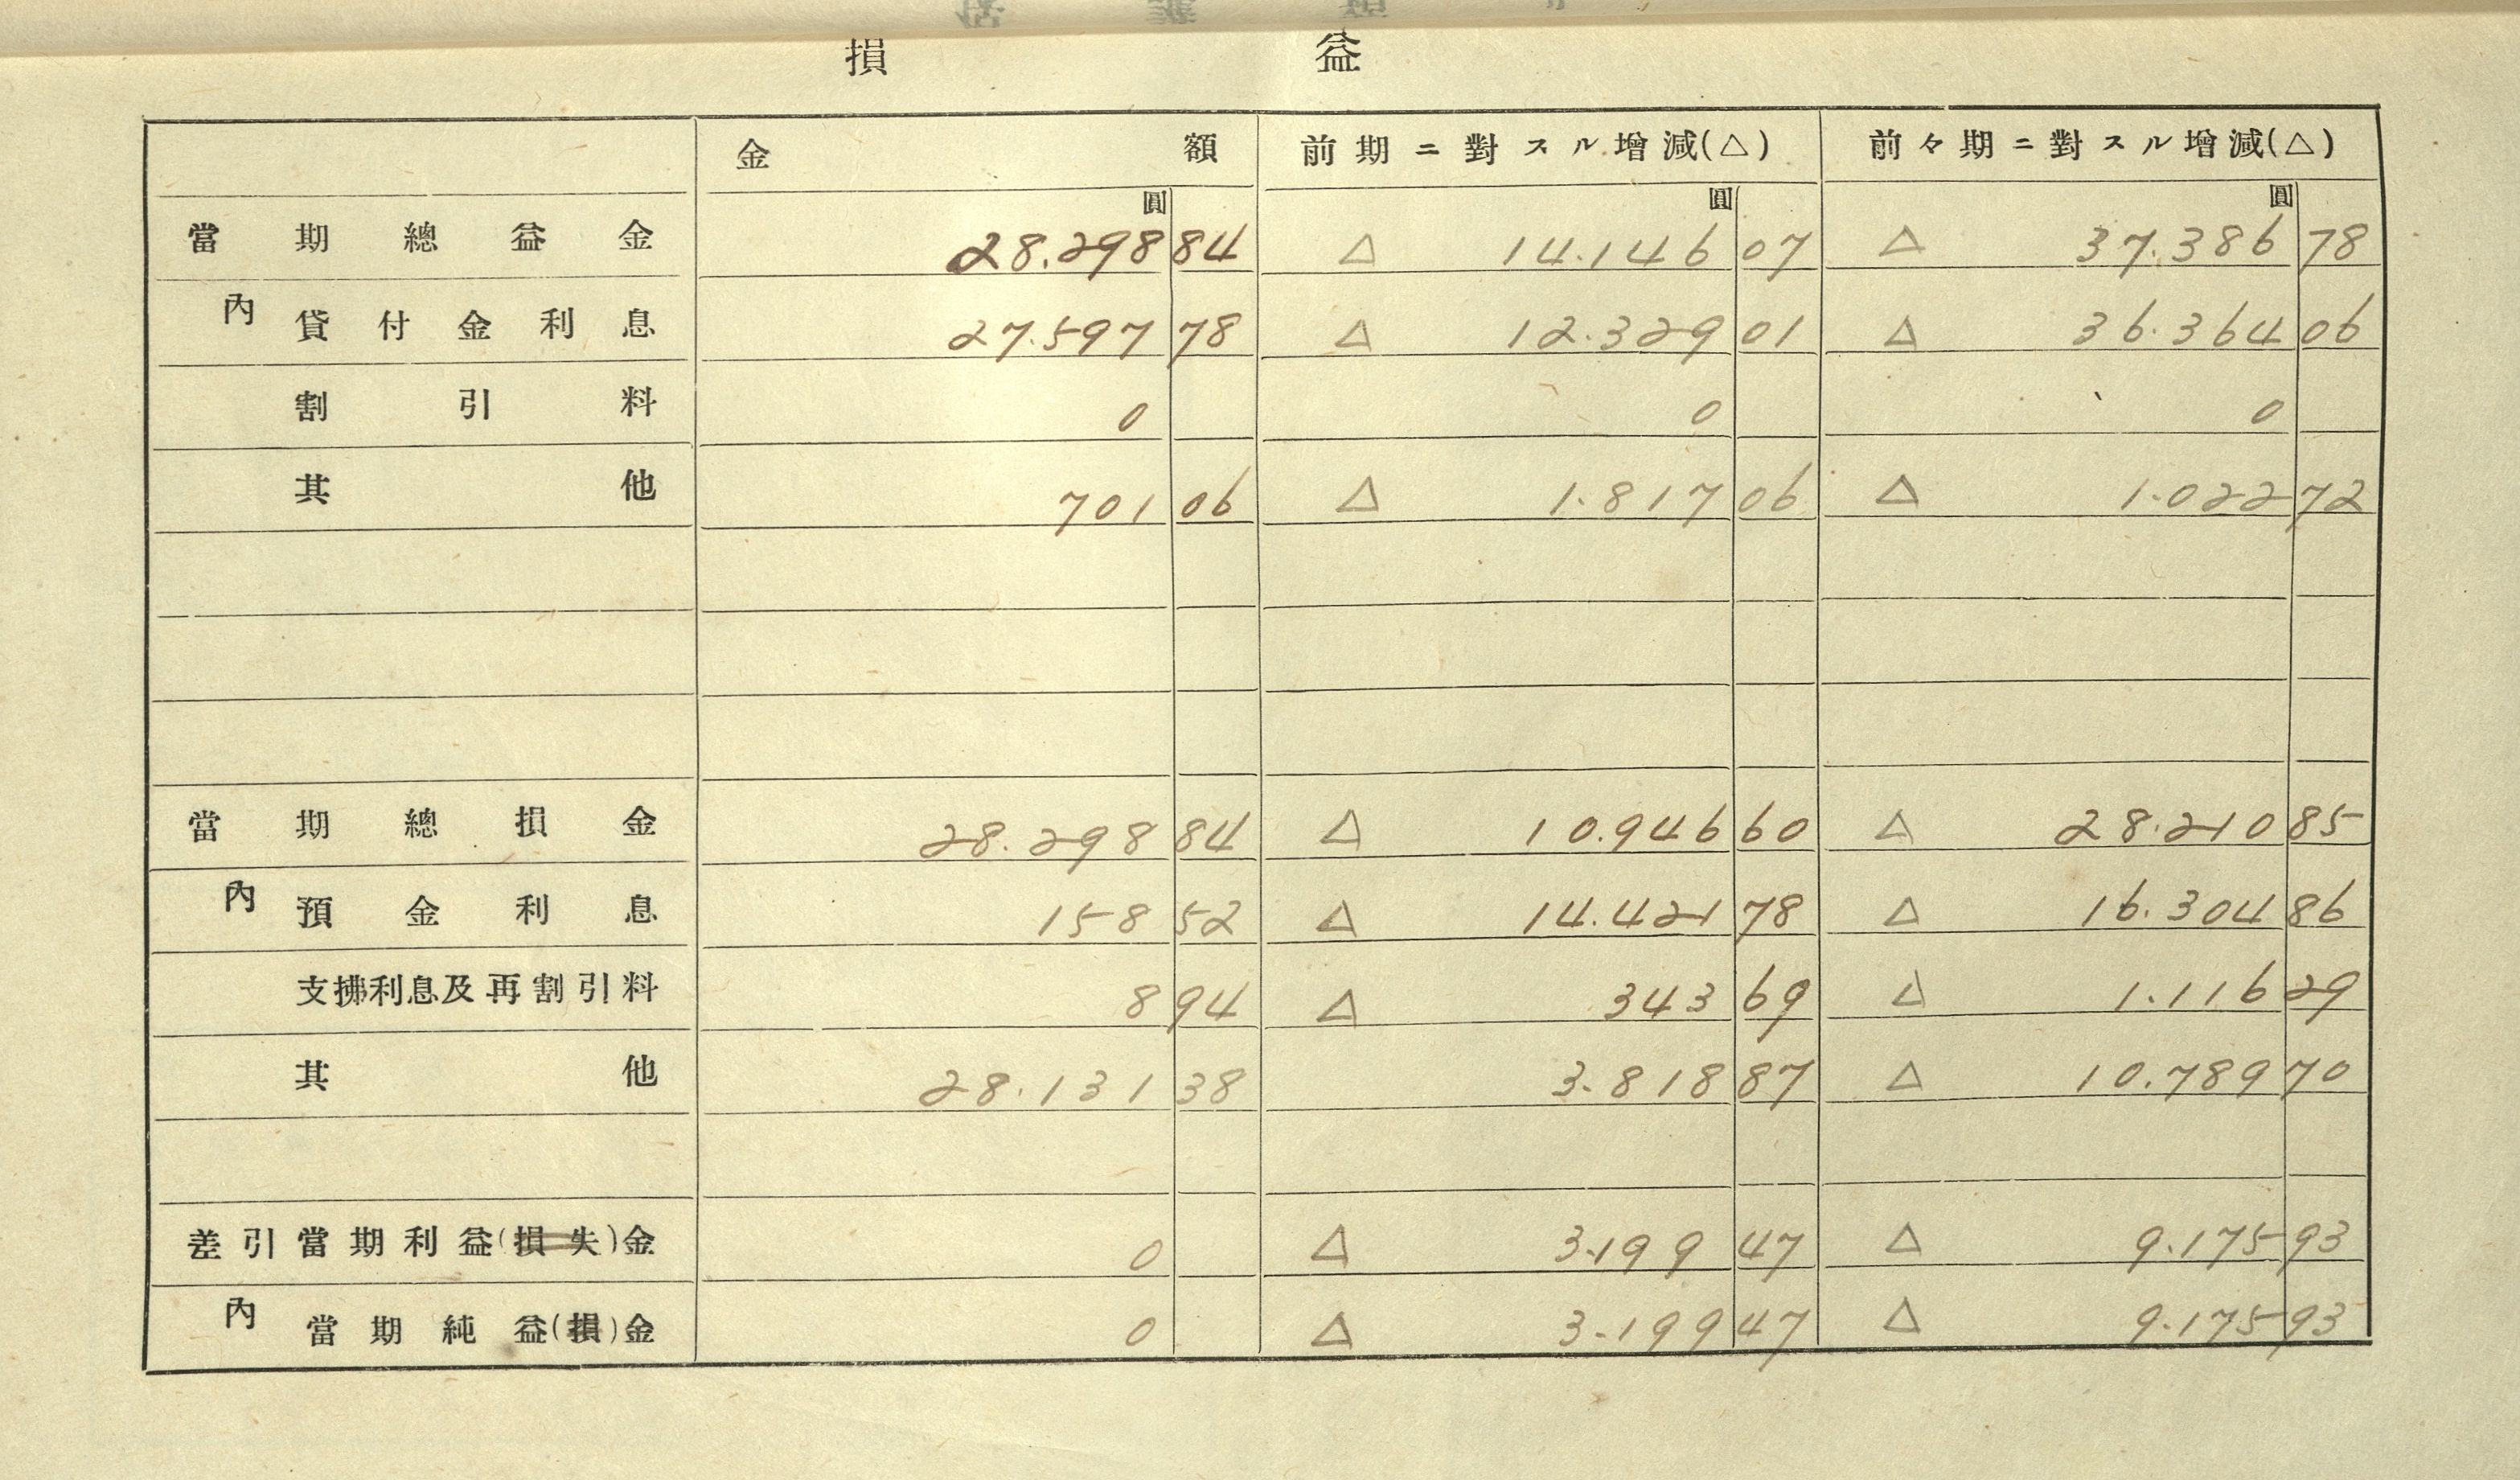 損益
金額 前期ニ對スル增減(△) 前々期ニ對スル增減(△)
圓 圓 圓
當期總益金 28.298 84 △ 14.146 07 △ 37.386 78
內 貸付金利息 27.597 78 △ 12.329 01 △ 36.364 06
割引料 0 0 0
其他 701 06 △ 1.817 06 △ 1.022 72
當期總損金 28.298 84 △ 10.946 60 △ 28.210 85
內 預金利息 158 52 △ 14.421 78 △ 16.304 86
支拂利息及再割引料 8 94 △ 343 69 △ 1.116 29
其他 28.131 38 3.818 87 △ 10.789 70
差引當期利益(損失)金 0 △ 3.199 47 △ 9.175 93
內 當期純益(損)金 0 △ 3.199 47 △ 9.175 93